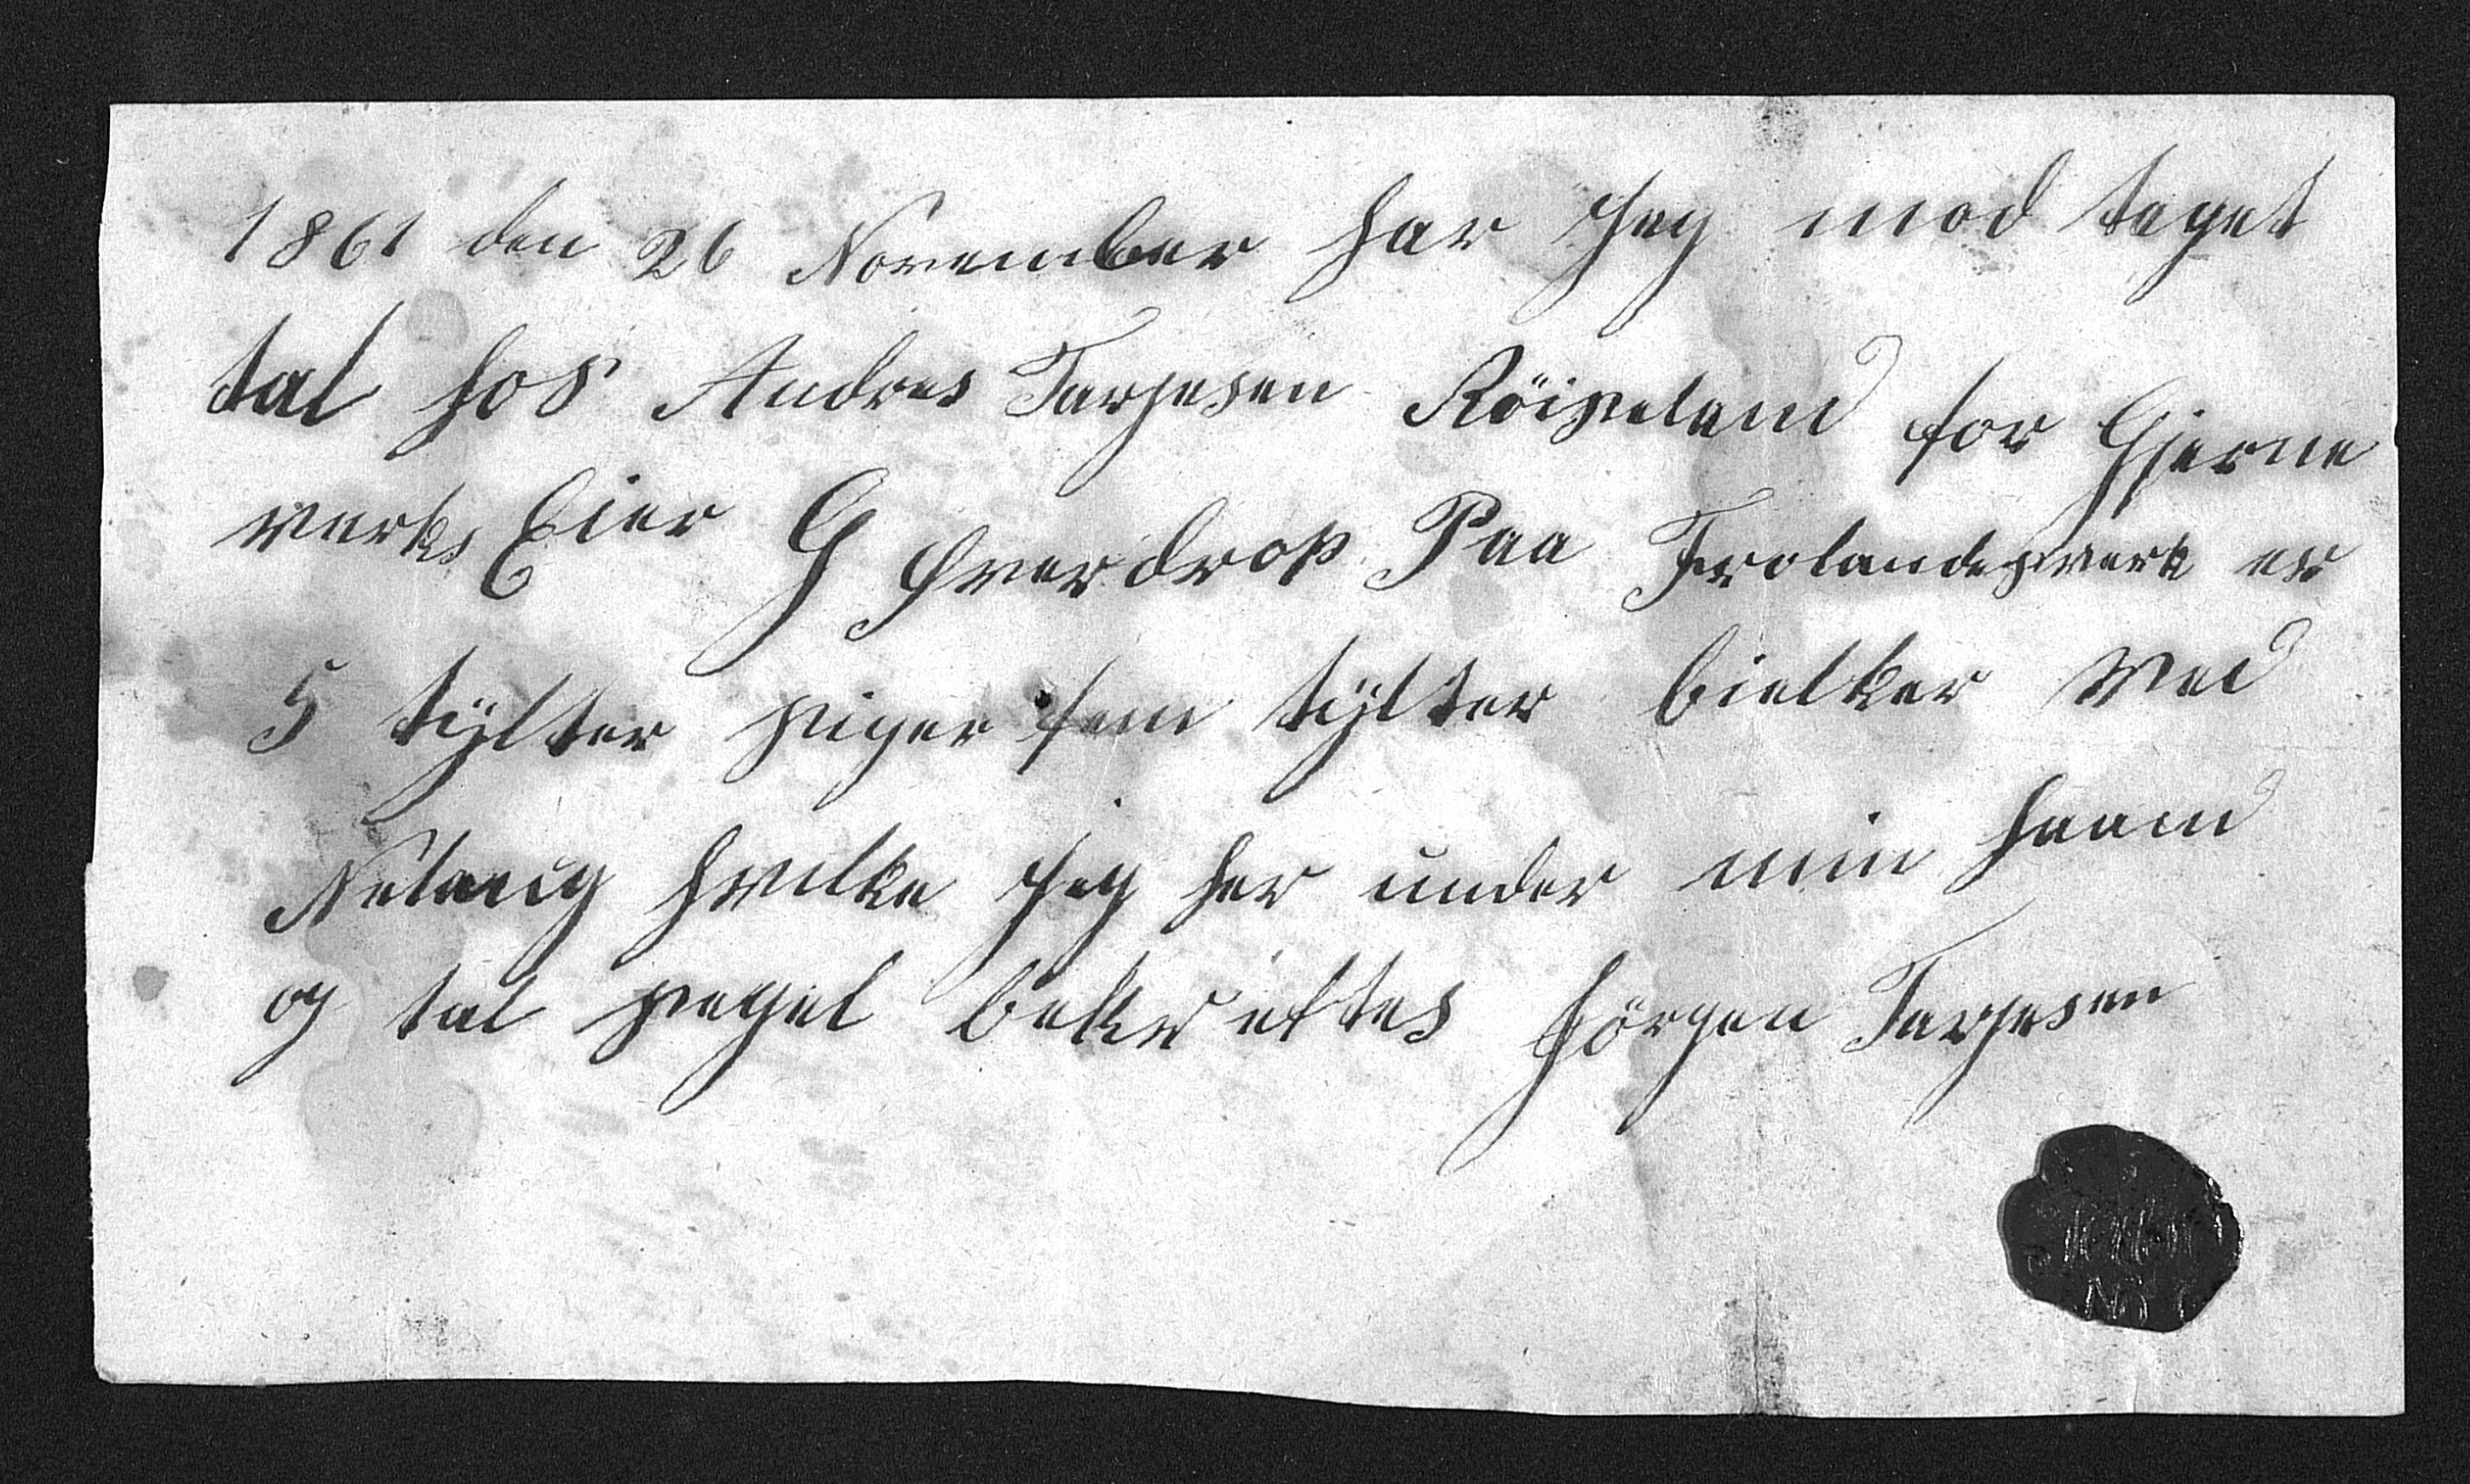 1861 den 26 November har Jeg mod teget
tal hos Andres Tarjesen Röiseland for Gjerne
verks Eier G Hverdrop Paa Frolandsverk er
5 tÿlter piger fem tÿlter bielker Med
Nelaug hvilke Jeg her under min haand
og tal segel bekreftes Jörgen Tarjesen